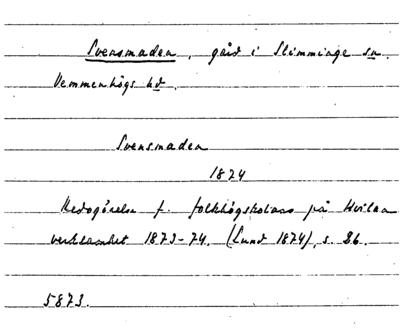 Svensmaden, gård i Slimminge sn.
Vemmenhögs hd.
Svensmaden
1874
Redogörelse f. folkhögskolans på Hvilan
verksamhet 1873-74. (Lund 1874), s. 26.
5873.